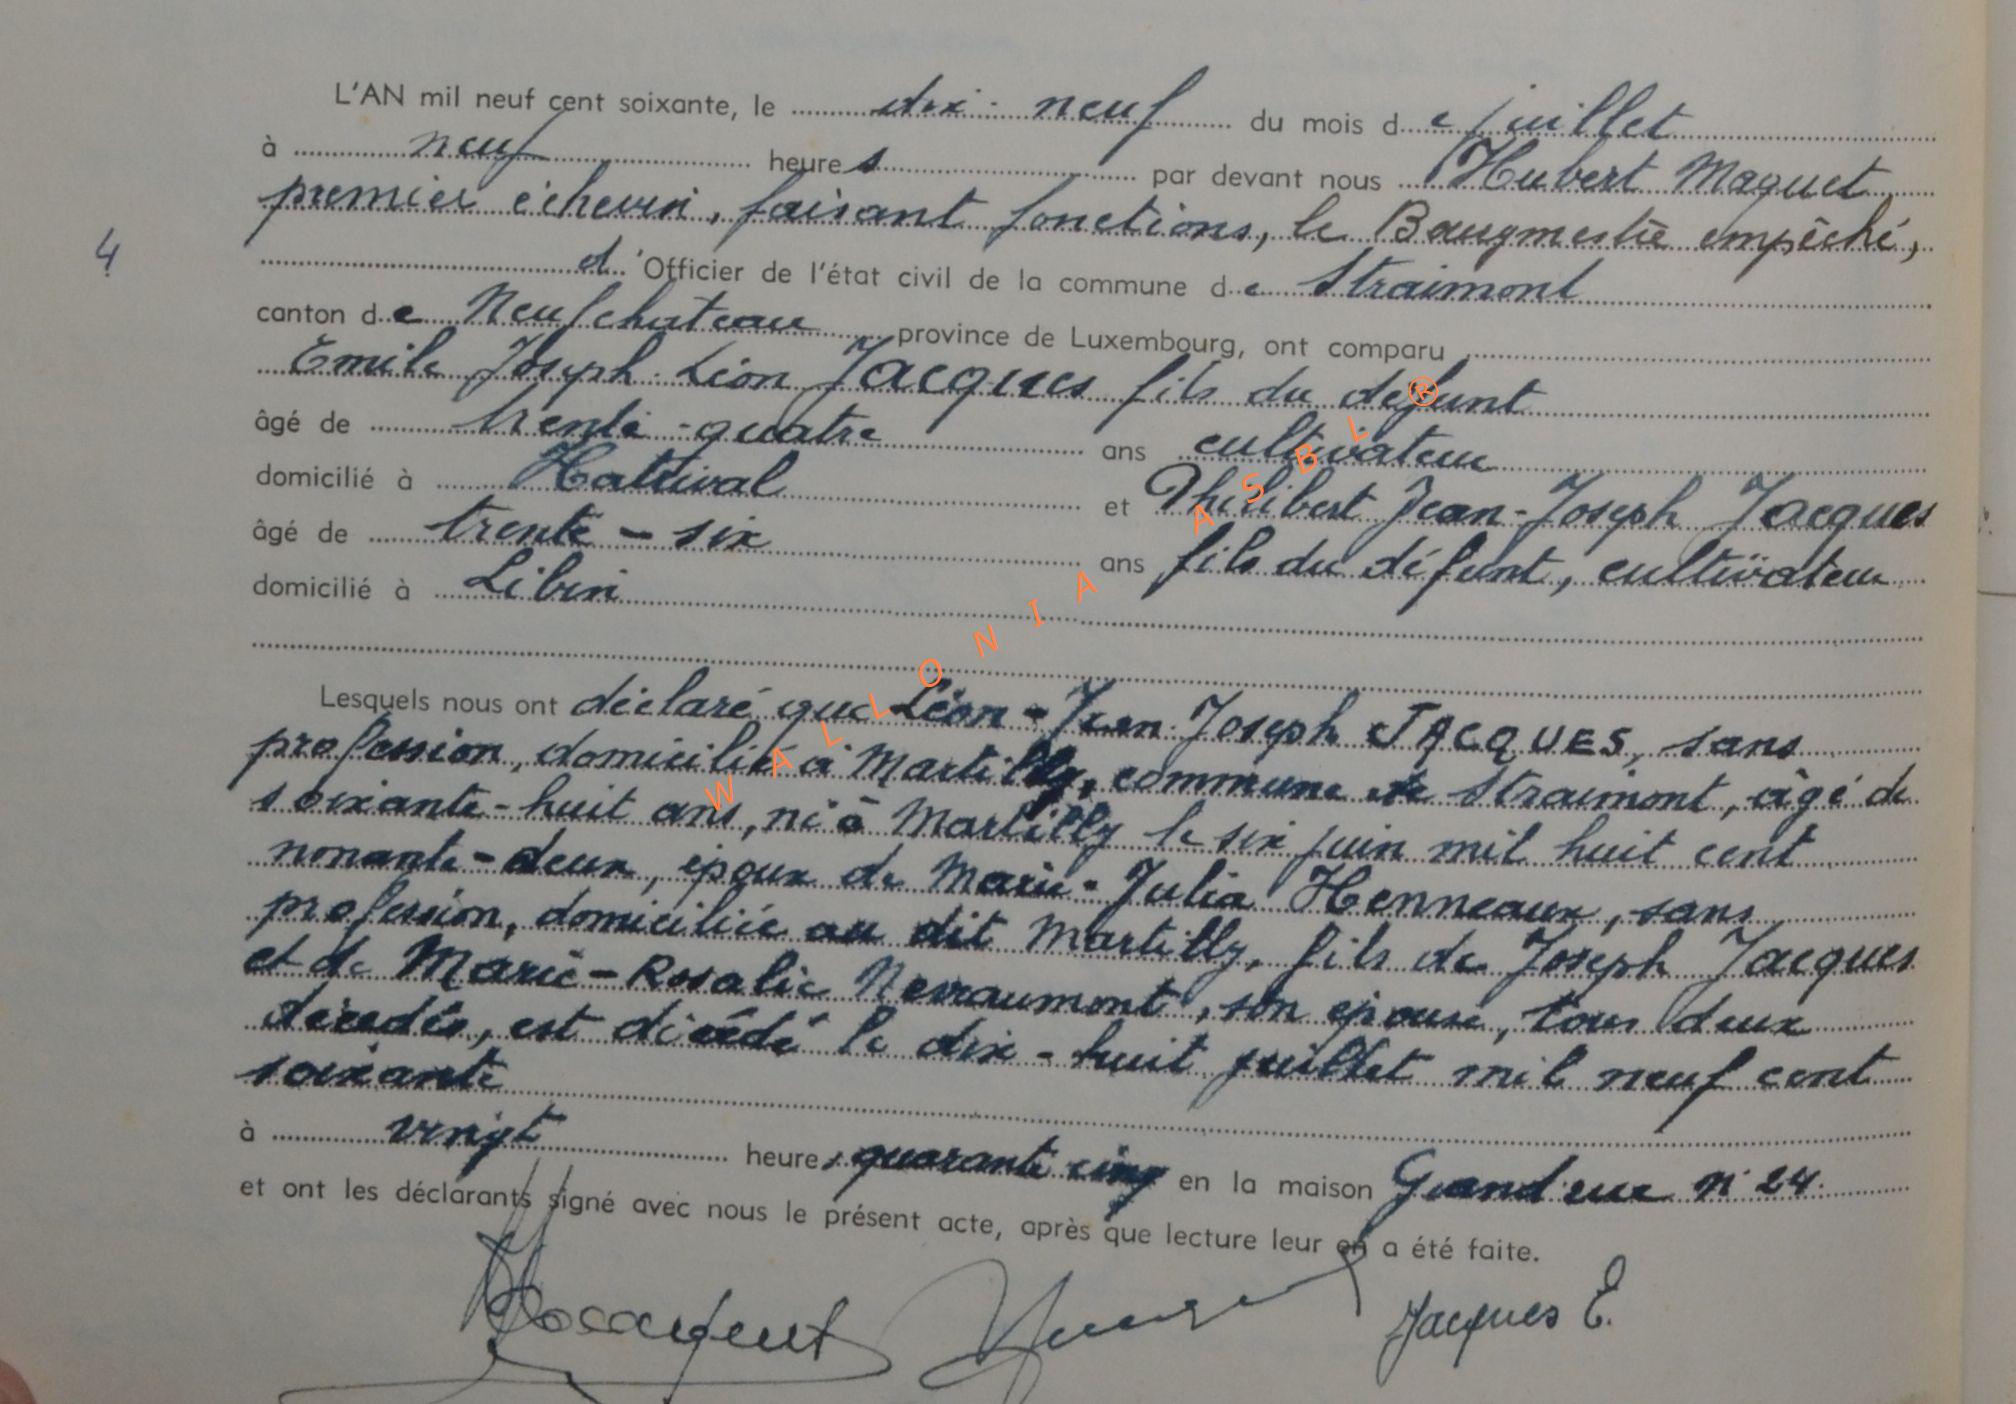 L'AN mil neuf cent soixante, le dix-neuf du mois de juillet
à neuf heures par devant nous Hubert Maquet
premier échevin, faisant fonctions, le Bourgmestre empêché,
4
d'Officier de l'état civil de la commune de Straimont
canton de Neufchateau province de Luxembourg, ont comparu
Emile Joseph Léon Jacques fils du defunt
âgé de trente-quatre ans cultivateur
domicilié à Hattival et Philibert Jean-Joseph Jacques
âgé de trente-six ans fils du défunt, cultivateur
domicilié à Libin
Lesquels nous ont déclaré que Léon-Jean Joseph JACQUES, sans
profession, domicilié à Martilly, commune de Straimont, âgé de
soixante-huit ans, né à Martilly le six juin mil huit cent
nonante-deux, époux de Marie-Julia Henneaux, sans
profession, domiciliée au dit Martilly, fils de Joseph Jacques
et de Marie-Rosalie Nevraumont, son épouse, tous deux
décédés, est décédé le dix-huit juillet mil neuf cent
soixante
à vingt heures quarante cinq en la maison Grand'rue n° 24
et ont les déclarants signé avec nous le présent acte, après que lecture leur en a été faite.
Jacques E.
WALLONIA ASBL ®